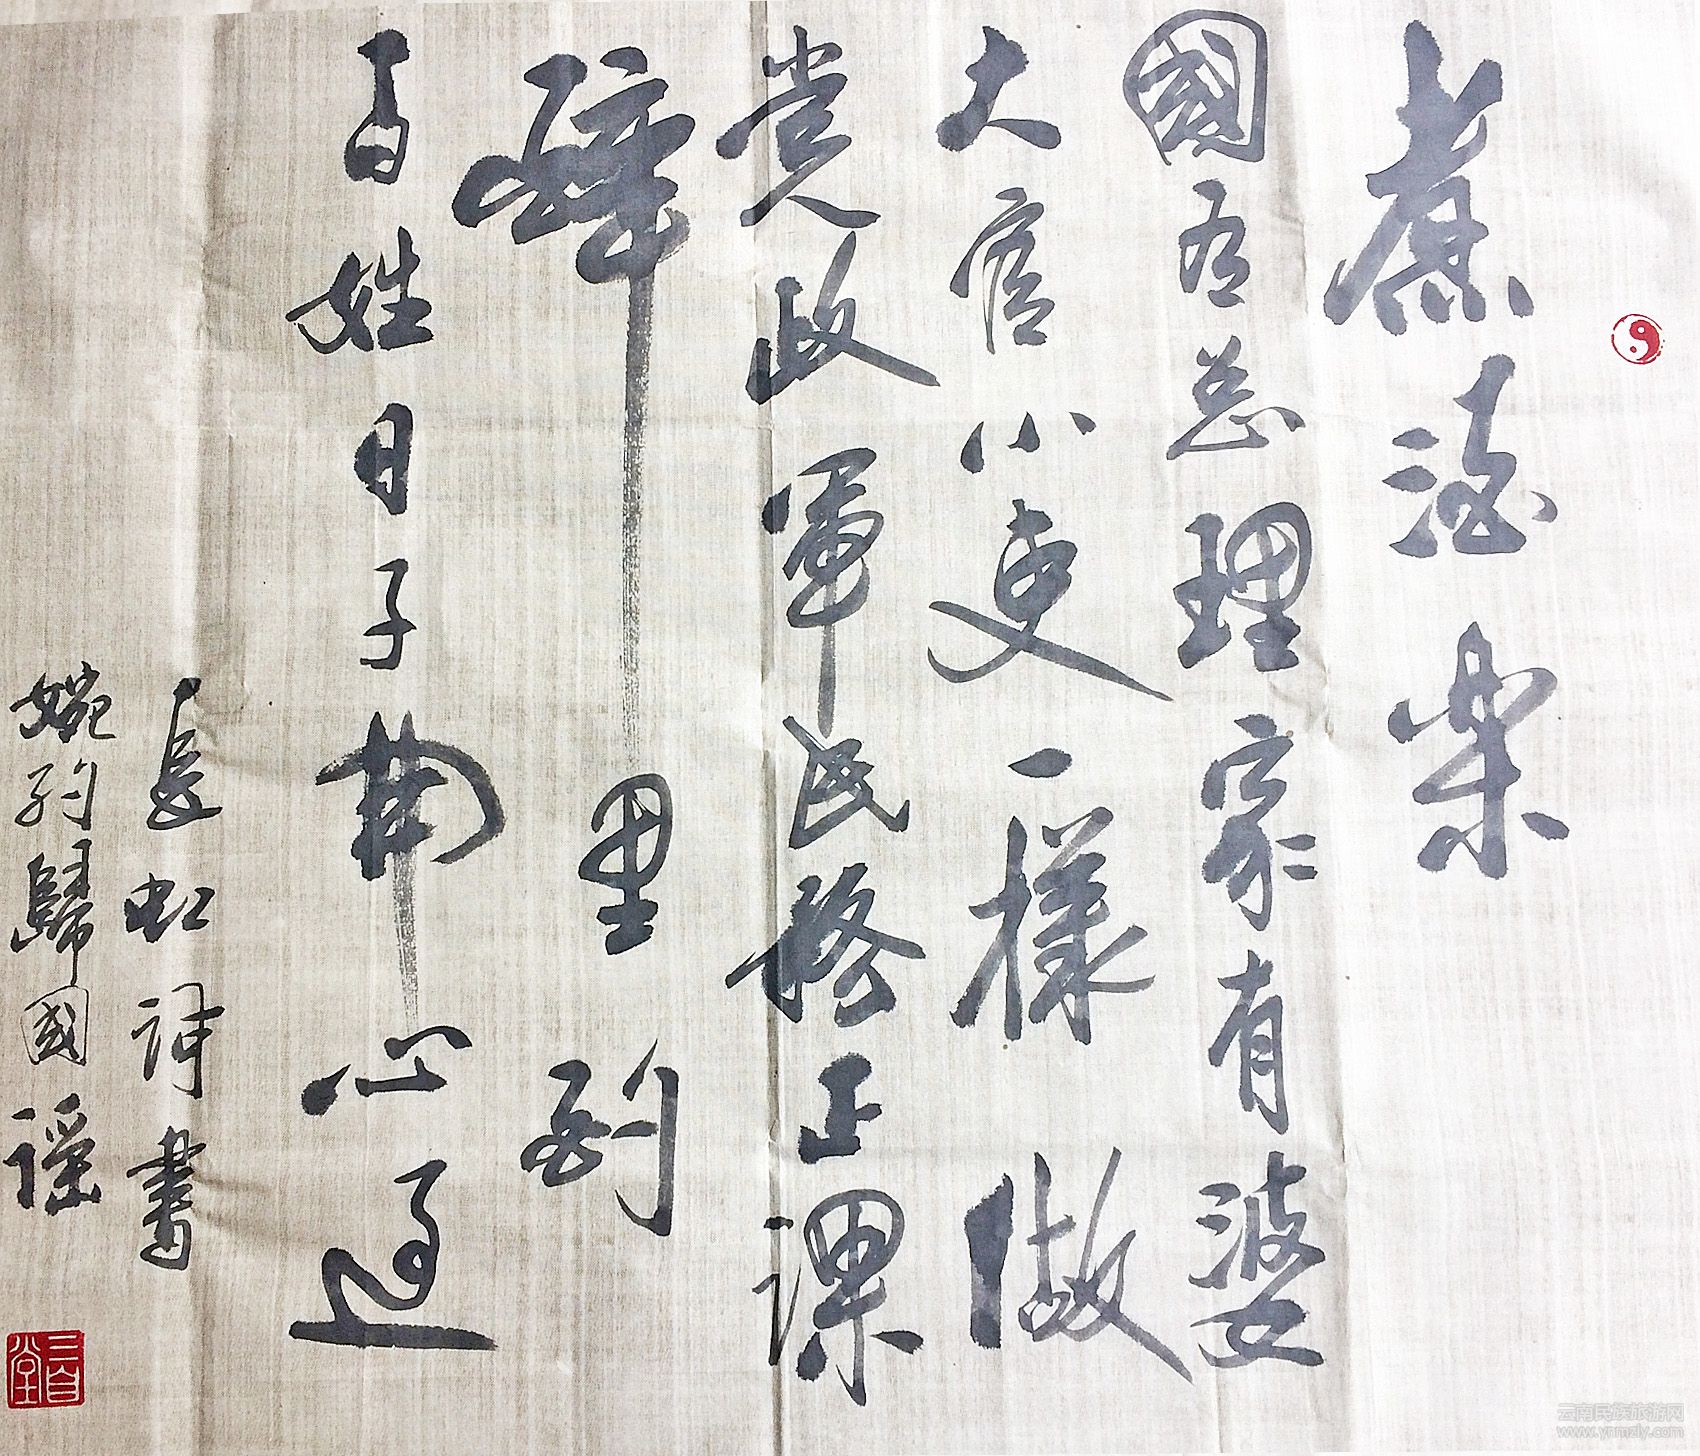 煮酒樂
國有总理家有婆
大官小吏一樣做
党政軍民務正課
里到
百姓日子心過
長虹詩書
婉約歸國謠
云南民族旅游网
www.ynmzly.com